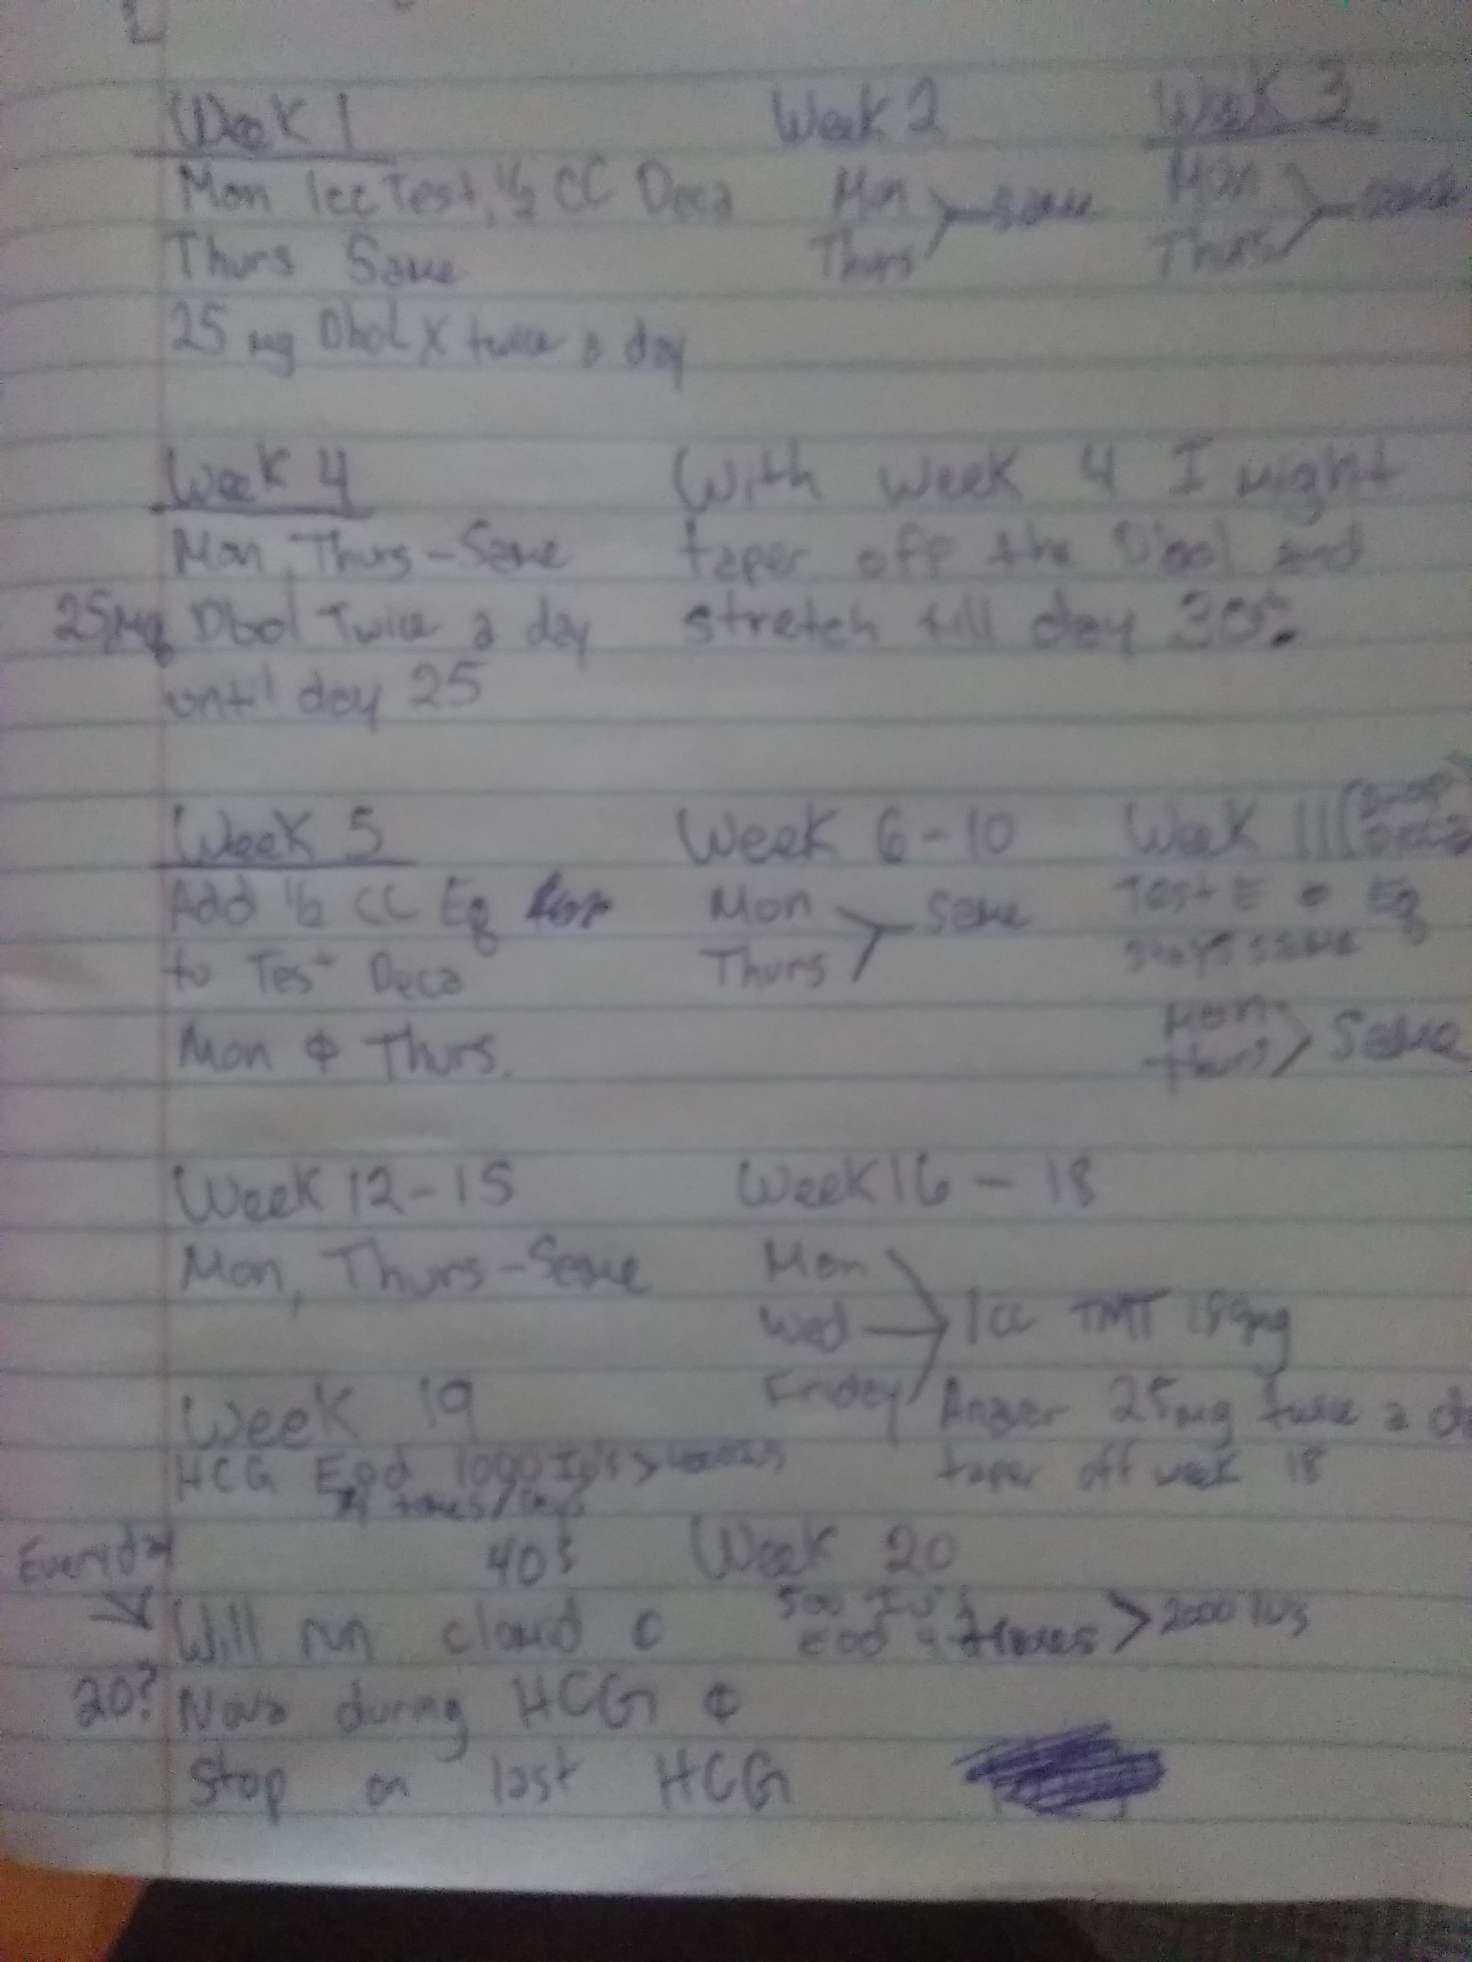 Week 1
Mon 1cc Test, 1/2 CC Deca
Thurs Same
25 mg Dbol X twice a day
Week 2
Mon
Thurs
same
Week 3
Mon
Thurs
same
Week 4
Mon, Thurs - Same
25mg Dbol Twice a day
until day 25
With week 4 I might
taper off the Dbol and
stretch till day 30th.
Week 5
Add 1/2 CC Eq for
to Test Deca
Mon & Thurs.
Week 6-10
Mon
Thurs
same
Week 11 (drop Deca)
Test E & Eq
stays same
Mon
Thurs
Same
Week 12-15
Mon, Thurs - Same
Week 16-18
Mon
Wed
Friday
1cc TMT
25mg twice a
taper off week 18
Week 19
HCG Eod 1000 IU's >
Everyday
40?
Will run clomid &
20? Nova during HCG &
stop on last HCG
Week 20
500 IU's
Eod 4 times > 2000 IU's